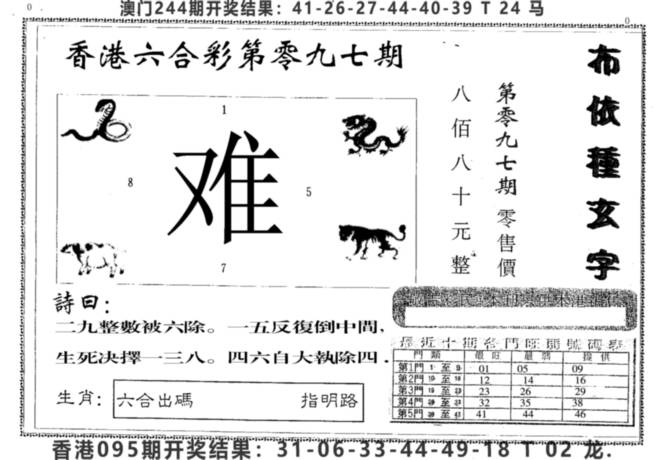 澳门244期开奖结果：41-26-27-44-40-39 T 24 马
0
0
香港六合彩第零九七期
布依種玄字
第零九七期 零售價
八佰八十元整
1
难
8
5
7
詩曰：
二九整數被六除。一五反復倒中間，
生死决擇一三八。四六自大執除四．
生肖：
六合出碼 指明路
最近十期各門旺開號碼表
門類 最旺 最弱 提供
第1門 1 至 9 01 05 09
第2門 10 至 12 14 16
第3門 至 23 26 29
第4門 至 32 35 38
第5門 至 41 44 46
香港095期开奖结果：31-06-33-44-49-18 T 02 龙.